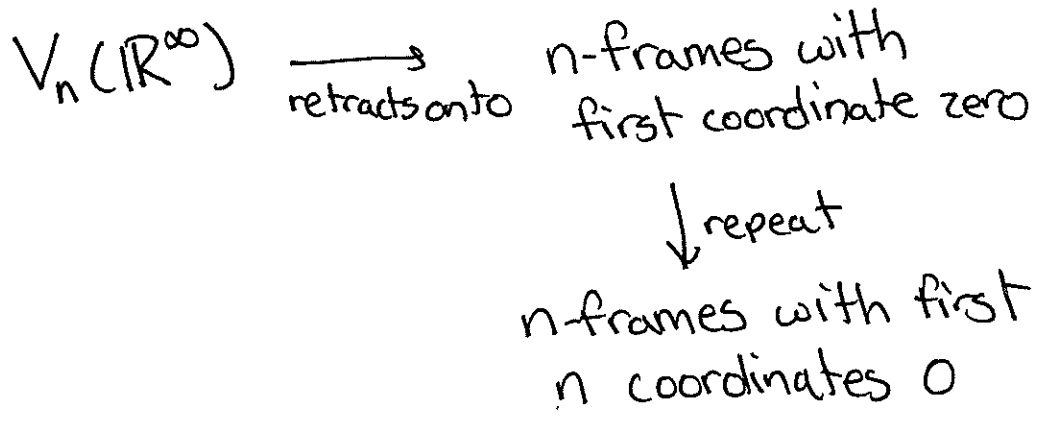 Vₙ(ℝ^∞) ⟶ n-frames with
retracts onto first coordinate zero
↓ repeat
n-frames with first
n coordinates 0